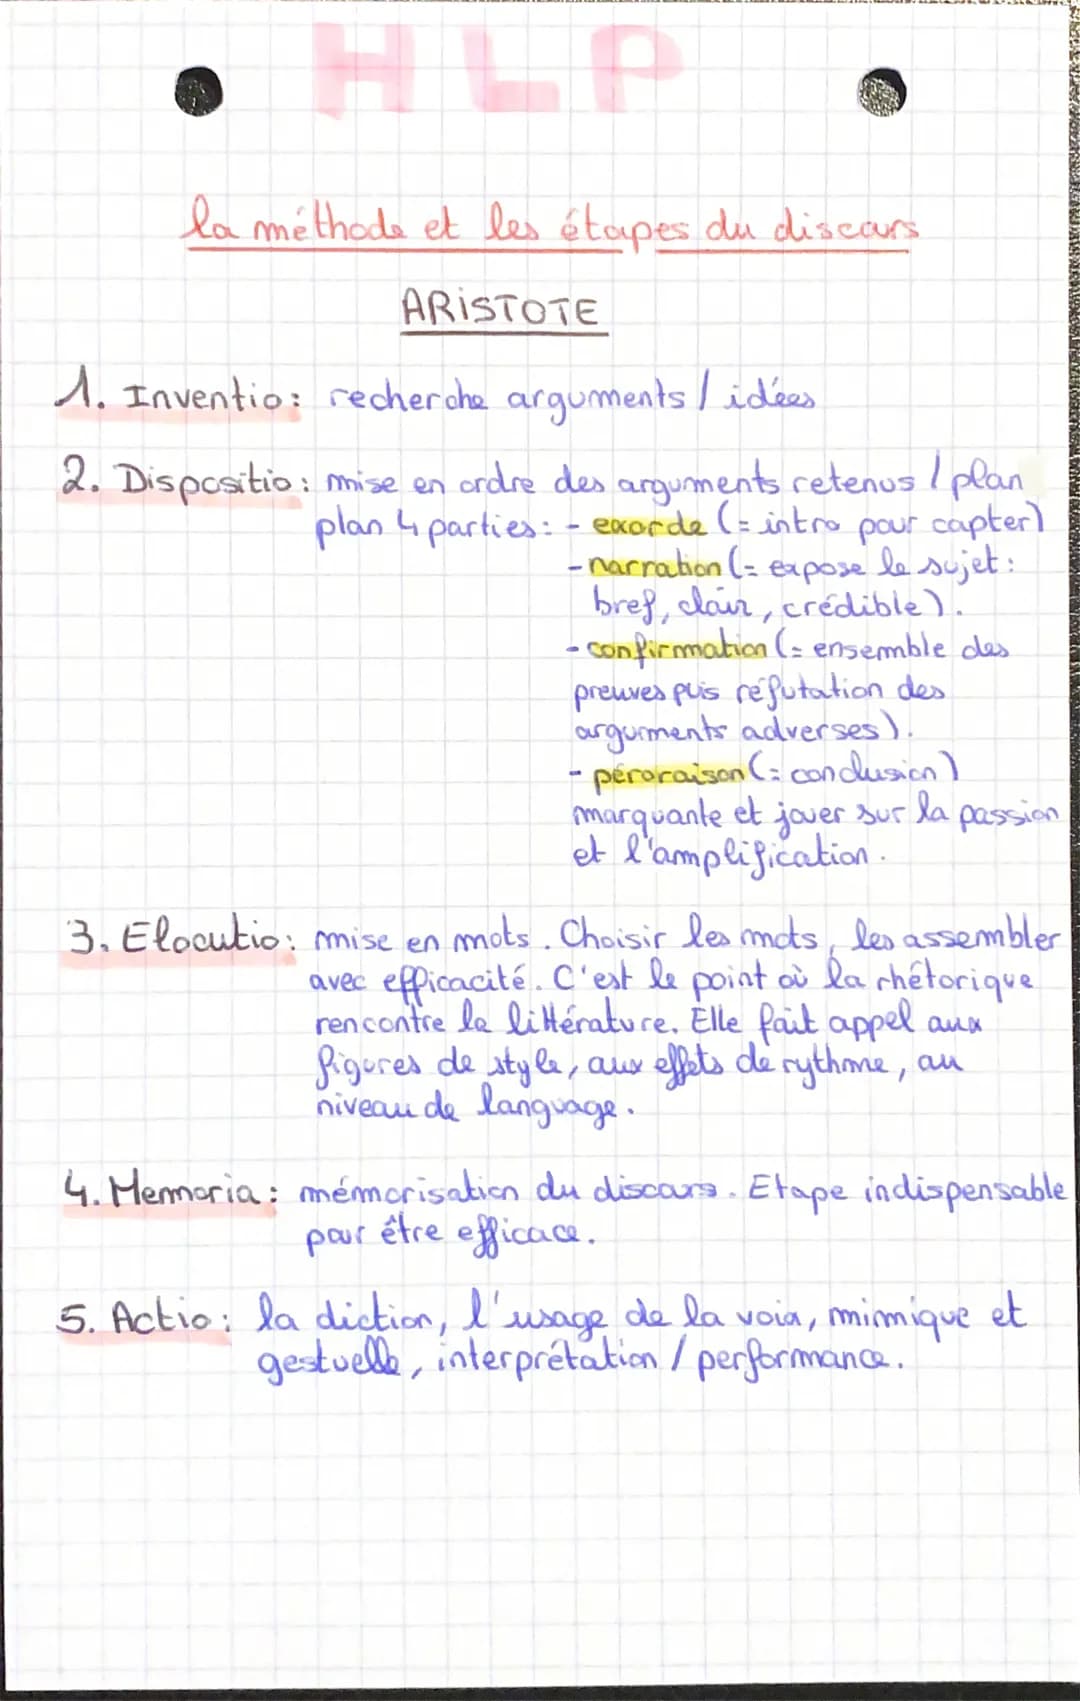 HLP
la méthode et les étapes du discours
ARISTOTE
1. Inventio: recherche arguments / idées
2. Dispositio: mise en ordre des arguments retenus / plan
plan 4 parties: - exorde (= intro pour capter)
- narration (= expose le sujet:
bref, clair, crédible).
- confirmation (= ensemble des
preuves puis réfutation des
arguments adverses).
- péroraison (= conclusion)
marquante et jouer sur la passion
et l'amplification.
3. Elocutio: mise en mots. Choisir les mots, les assembler
avec efficacité. C'est le point où la rhétorique
rencontre la littérature. Elle fait appel aux
figures de style, aux effets de rythme, au
niveau de language.
4. Memoria: mémorisation du discours. Etape indispensable
pour être efficace.
5. Actio: la diction, l'usage de la voix, mimique et
gestuelle, interprétation / performance.